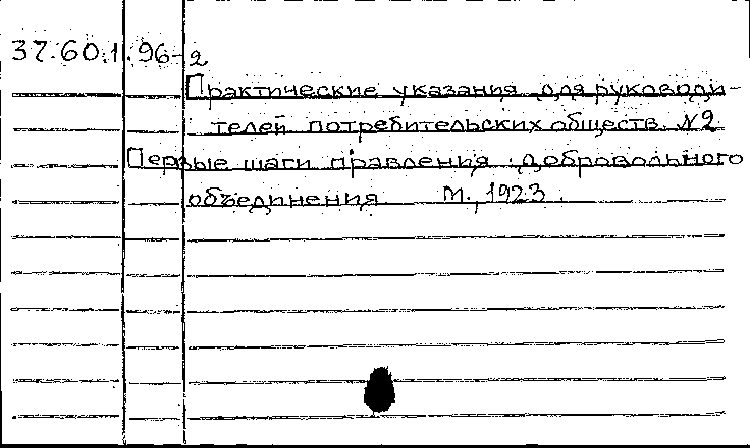 37.60.1.96-2
Практические указания для руководи-
телей потребительских обществ. №2
Первые шаги правления добровольного
объединения М., 1923.